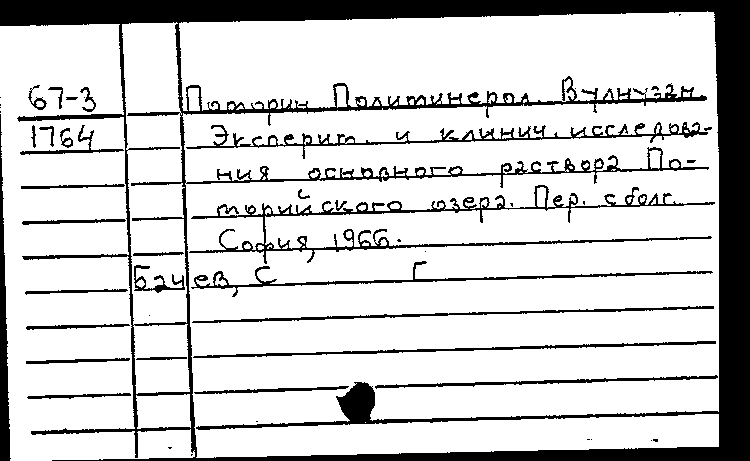 67-3 Поморин. Полиминерол. Вулнузан.
1764 Эксперим. и клинич. исследова-
ния основного раствора По-
морийского озера. Пер. с болг.
София, 1966.
Бачев, С Г